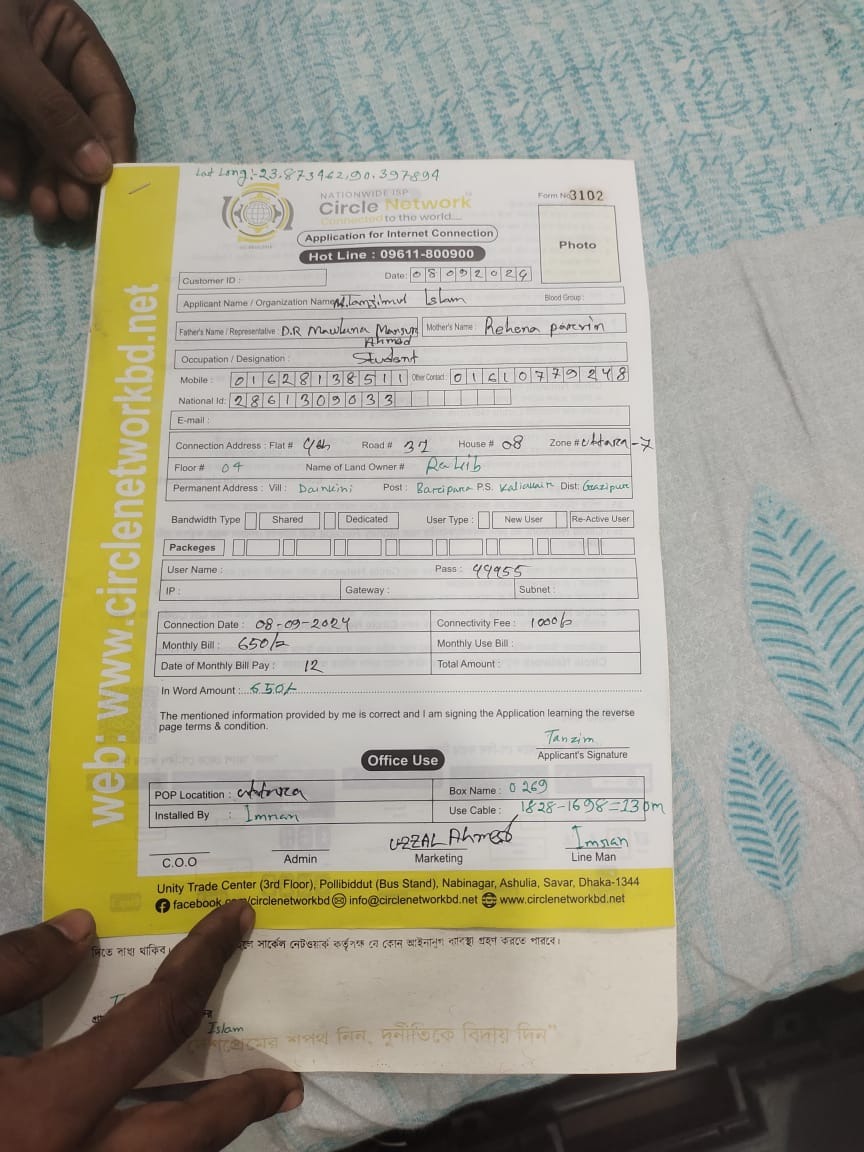 Lat Long:-23.873462,90.397894
NATIONWIDE ISP
Circle Network
Connected to the world....
Form No 3102
Application for Internet Connection
Hot Line : 09611-800900
Photo
Customer ID :
Date: 08092024
Applicant Name / Organization Name Islam Blood Group :
Father's Name / Representative : D.R Mawluna Mansur Ahmed Mother's Name : Rehena parvin
Occupation / Designation : Student
Mobile : 01628138511 Other Contact : 01610779248
National Id: 2861309033
E-mail :
Connection Address : Flat # Road # 37 House # 08 Zone # Uttara-7
Floor # 04 Name of Land Owner # Rakib
Permanent Address : Vill : Dainkini Post : Baroipara P.S. Kaliakair Dist: Gazipur
Bandwidth Type Shared Dedicated User Type : New User Re-Active User
Packeges
User Name : Pass : 44955
IP : Gateway : Subnet :
Connection Date : 08-09-2024 Connectivity Fee : 1000/-
Monthly Bill : 650/- Monthly Use Bill :
Date of Monthly Bill Pay : 12 Total Amount :
In Word Amount : 650/-
The mentioned information provided by me is correct and I am signing the Application learning the reverse
page terms & condition.
Tanzim
Applicant's Signature
Office Use
POP Locatition : Uttara Box Name : 0269
Installed By : Imran Use Cable : 1828-1698=130m
UZZAL Ahmed Imran
C.O.O Admin Marketing Line Man
Unity Trade Center (3rd Floor), Pollibiddut (Bus Stand), Nabinagar, Ashulia, Savar, Dhaka-1344
facebook. /circlenetworkbd info@circlenetworkbd.net www.circlenetworkbd.net
web: www.circlenetworkbd.net
দিতে বাধ্য থাকিব। সার্কেল নেটওয়ার্ক কর্তৃপক্ষ যে কোন আইনানুগ ব্যাবস্থা গ্রহণ করতে পারবে।
Islam
শপথ নিন, দুর্নীতিকে বিদায় দিন"